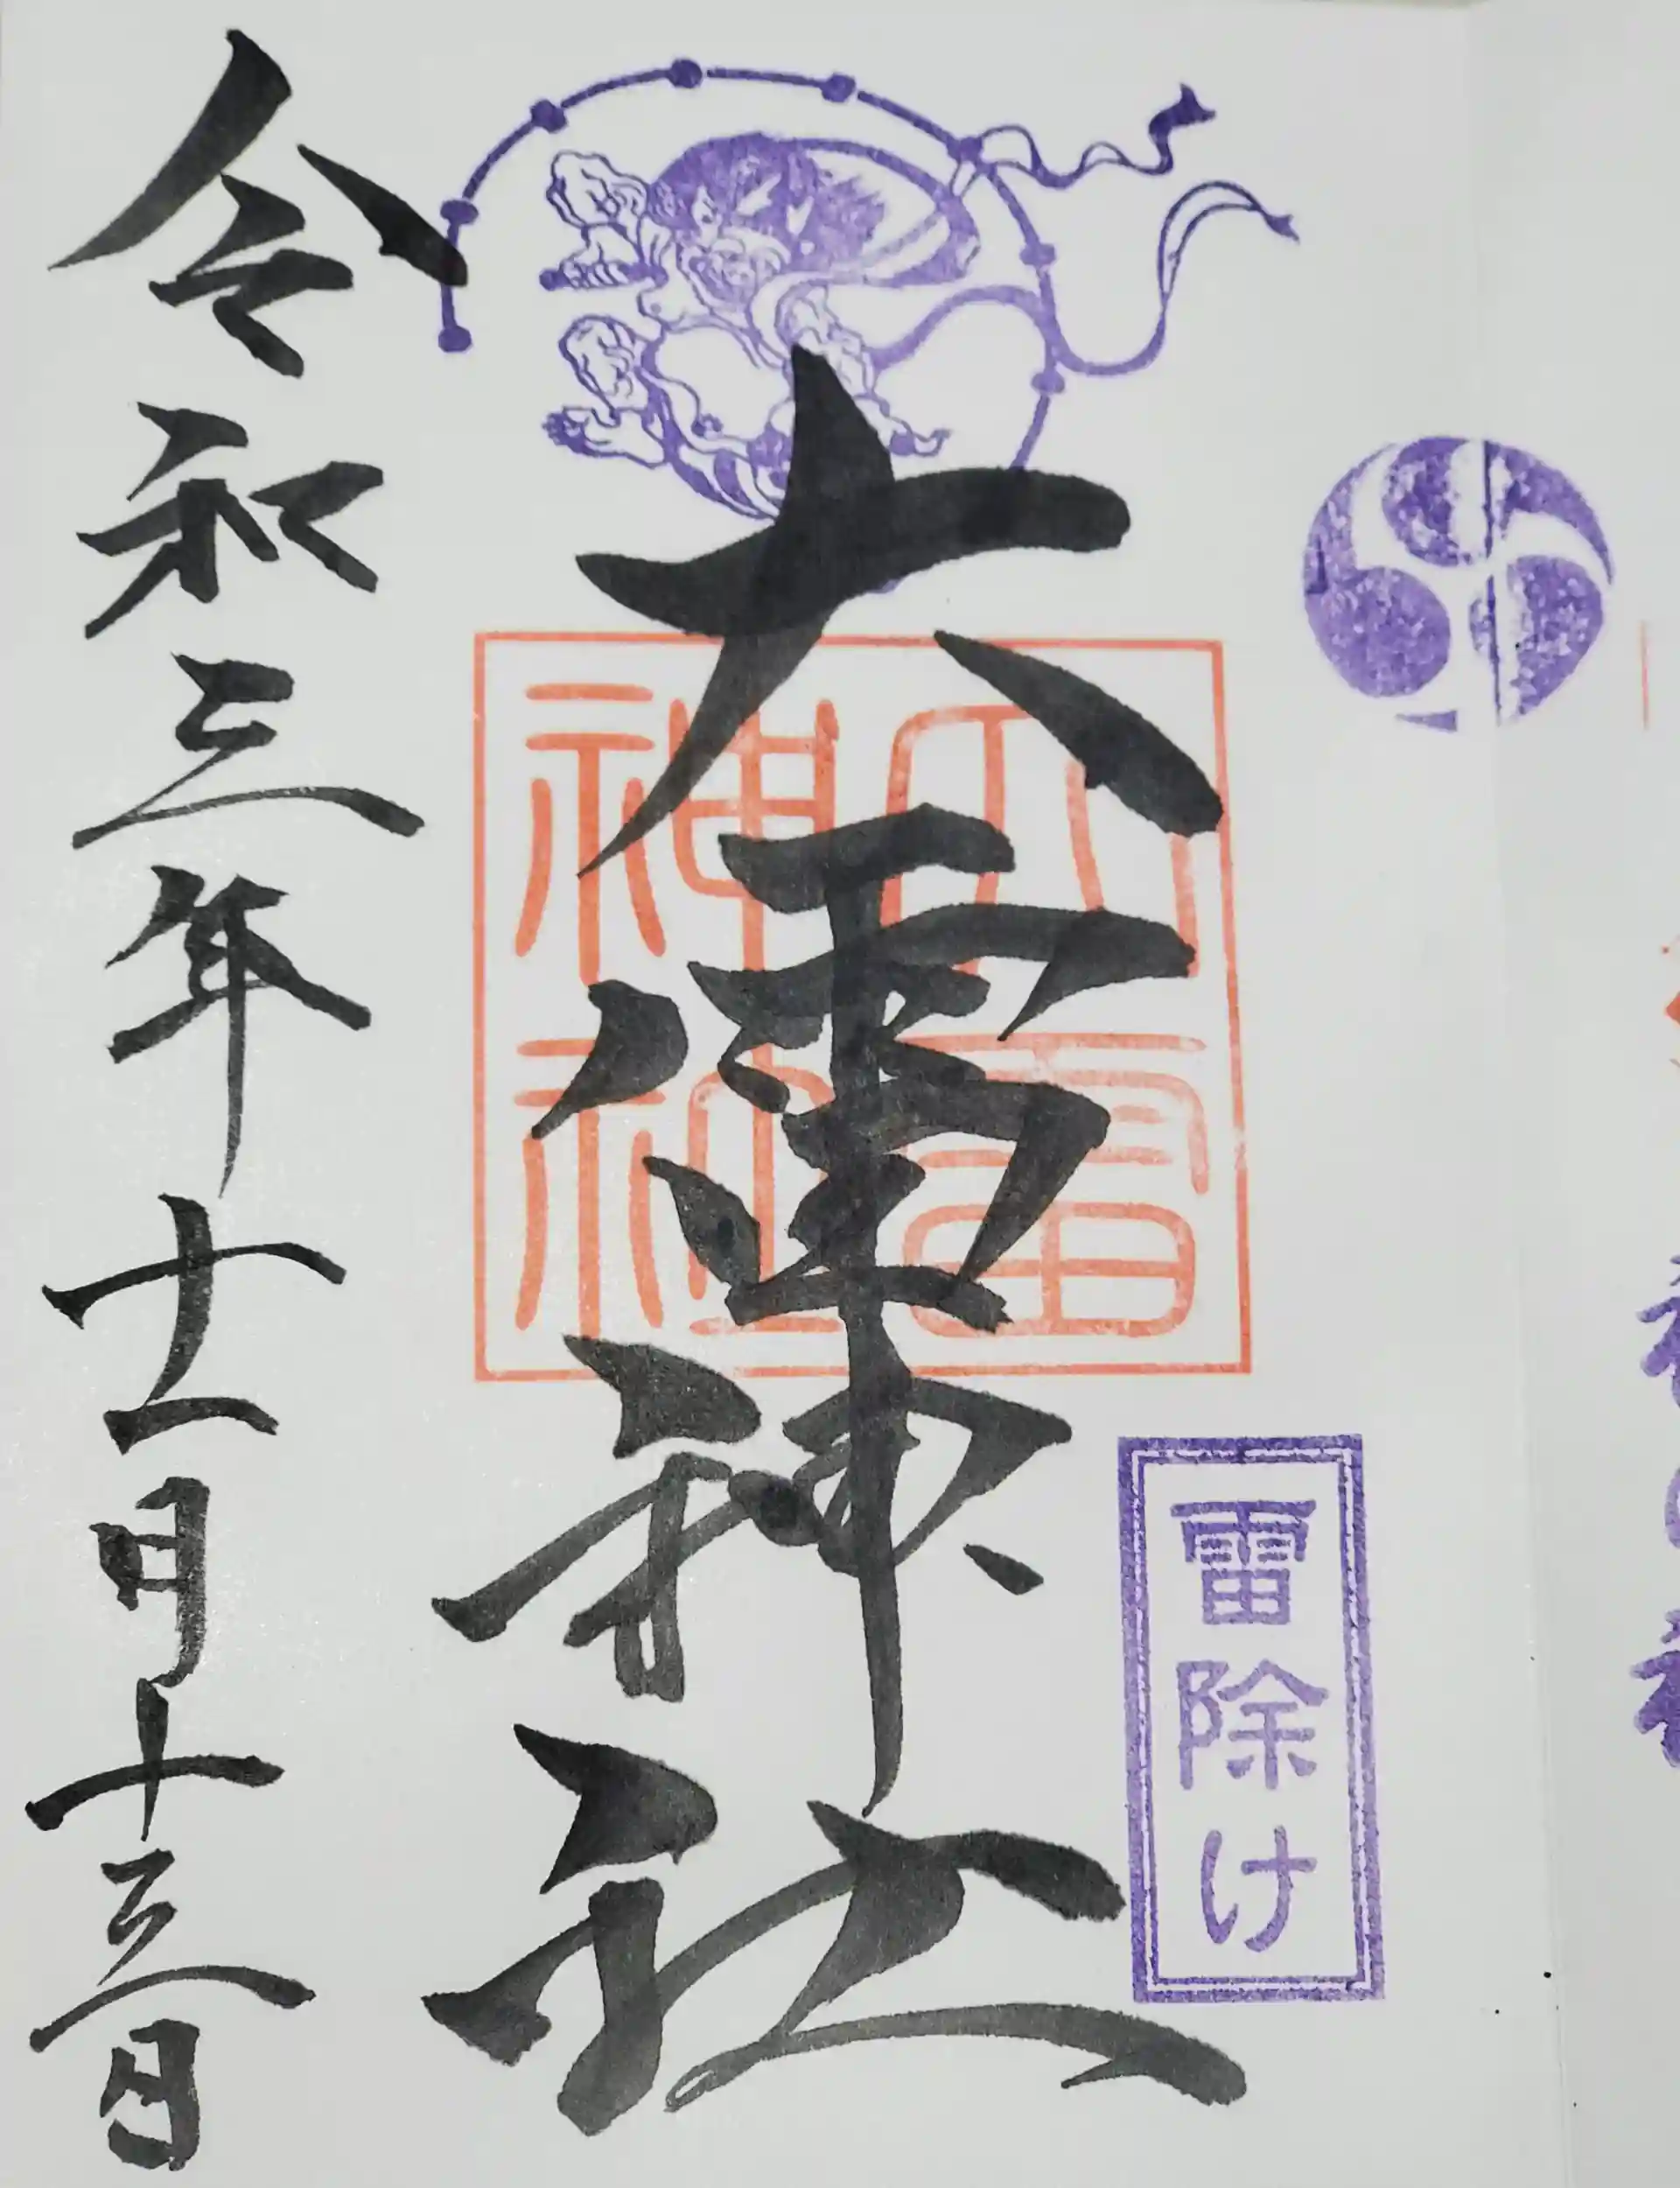 雷除け
大雷神社
大雷神社
令和三年十一月十三日